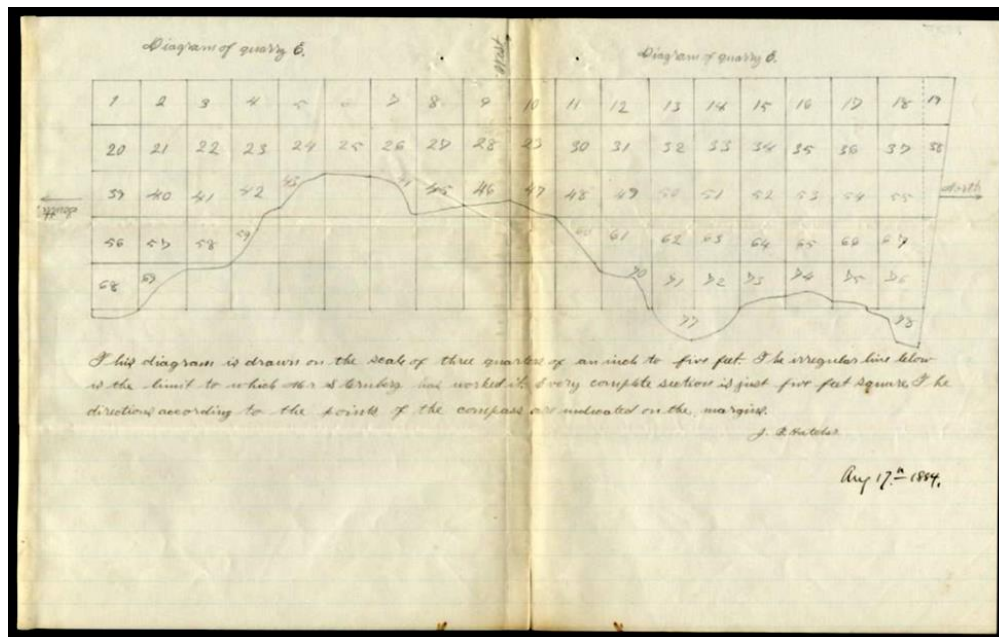 Diagram of quarry 6.
West
Diagram of quarry 6.
1 2 3 4 5 6 7 8 9 10 11 12 13 14 15 16 17 18 19
20 21 22 23 24 25 26 27 28 29 30 31 32 33 34 35 36 37 38
South
39 40 41 42 43 44 45 46 47 48 49 50 51 52 53 54 55
North
56 57 58 59 60 61 62 63 64 65 66 67
68 69 70 71 72 73 74 75 76
77 78
This diagram is drawn on the scale of three quarters of an inch to five feet. The irregular line below
is the limit to which Mr Sternberg has worked it. Every complete section is just five feet square. The
directions according to the points of the compass are indicated on the margins.
J. B. Hatcher
Aug 17th 1884.